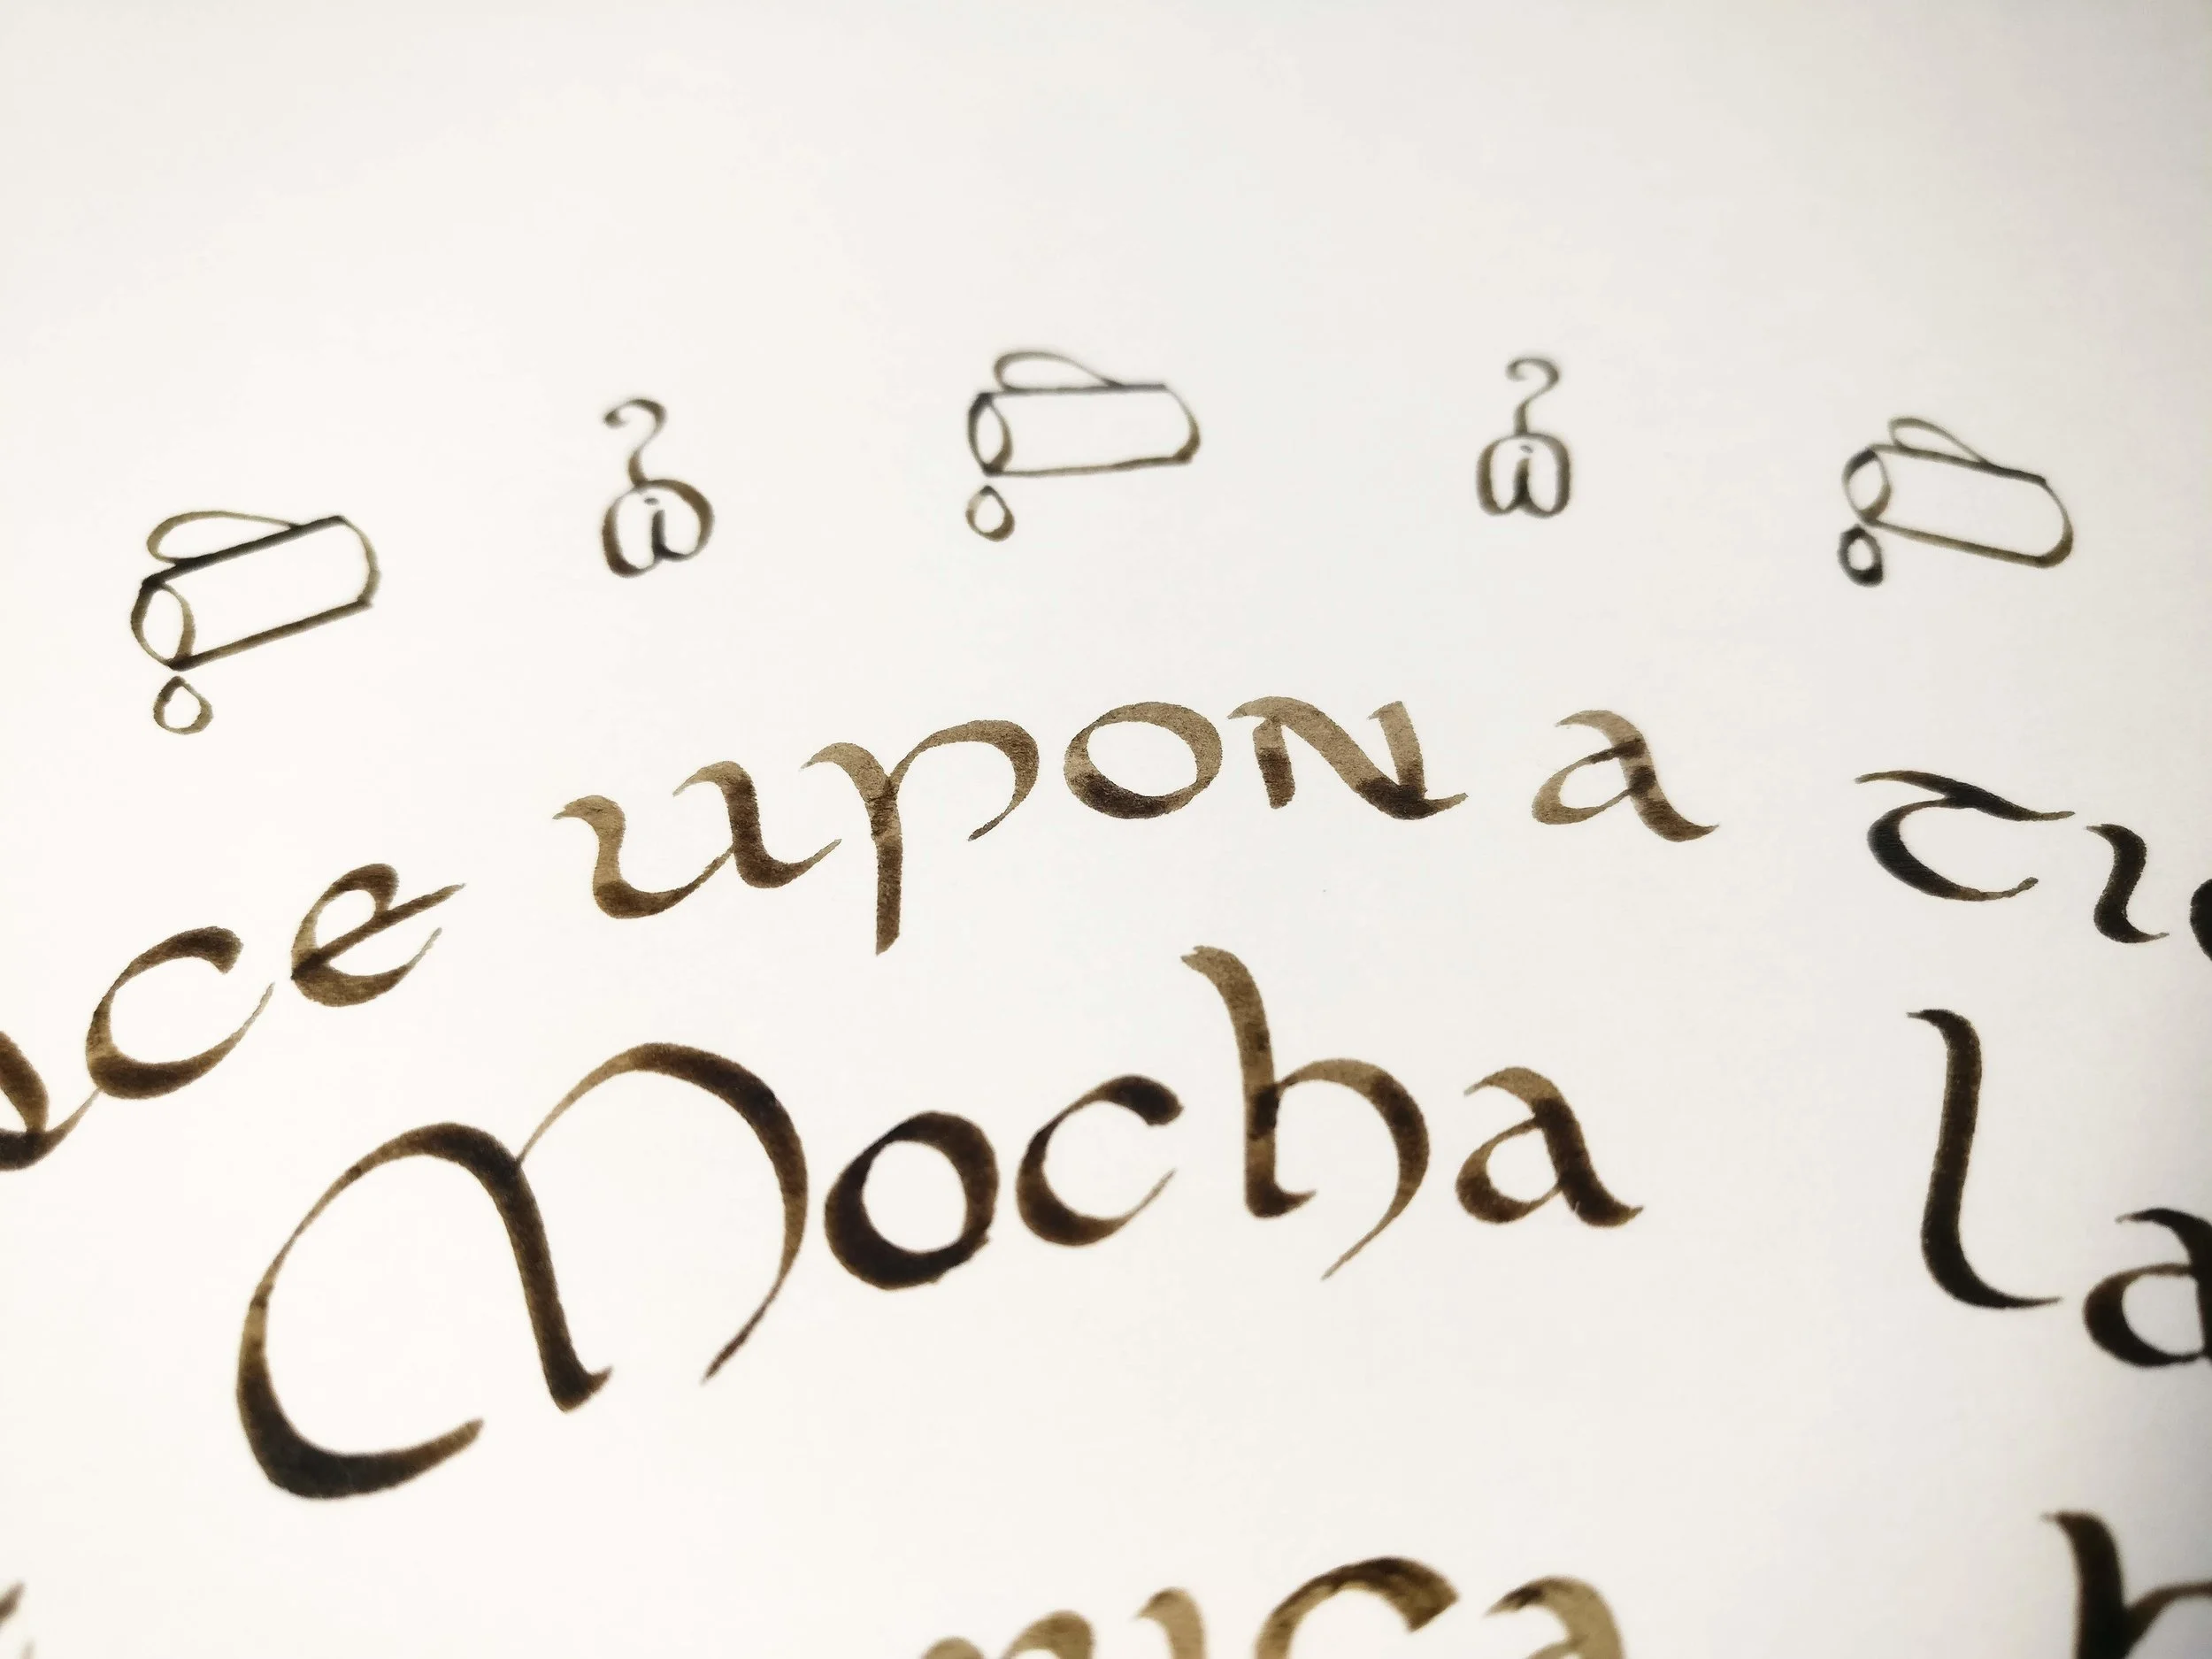 ce upon a
Mocha la